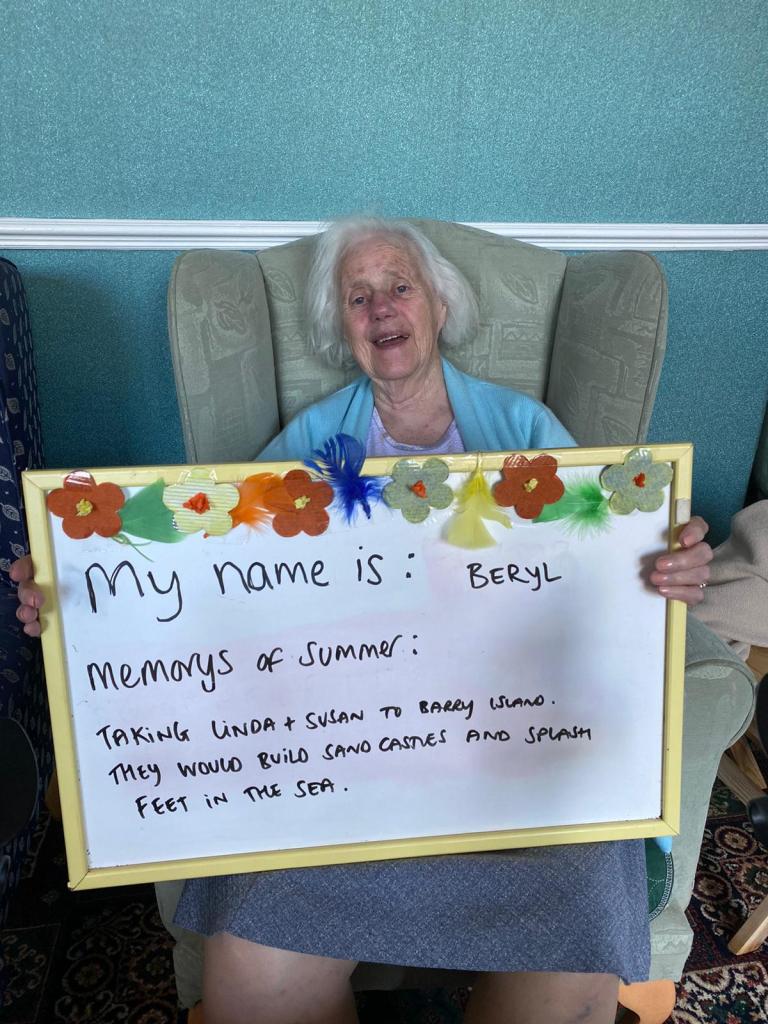 My name is: BERYL
Memorys of summer:
TAKING LINDA + SUSAN TO BARRY ISLAND.
THEY WOULD BUILD SAND CASTLES AND SPLASH
FEET IN THE SEA.